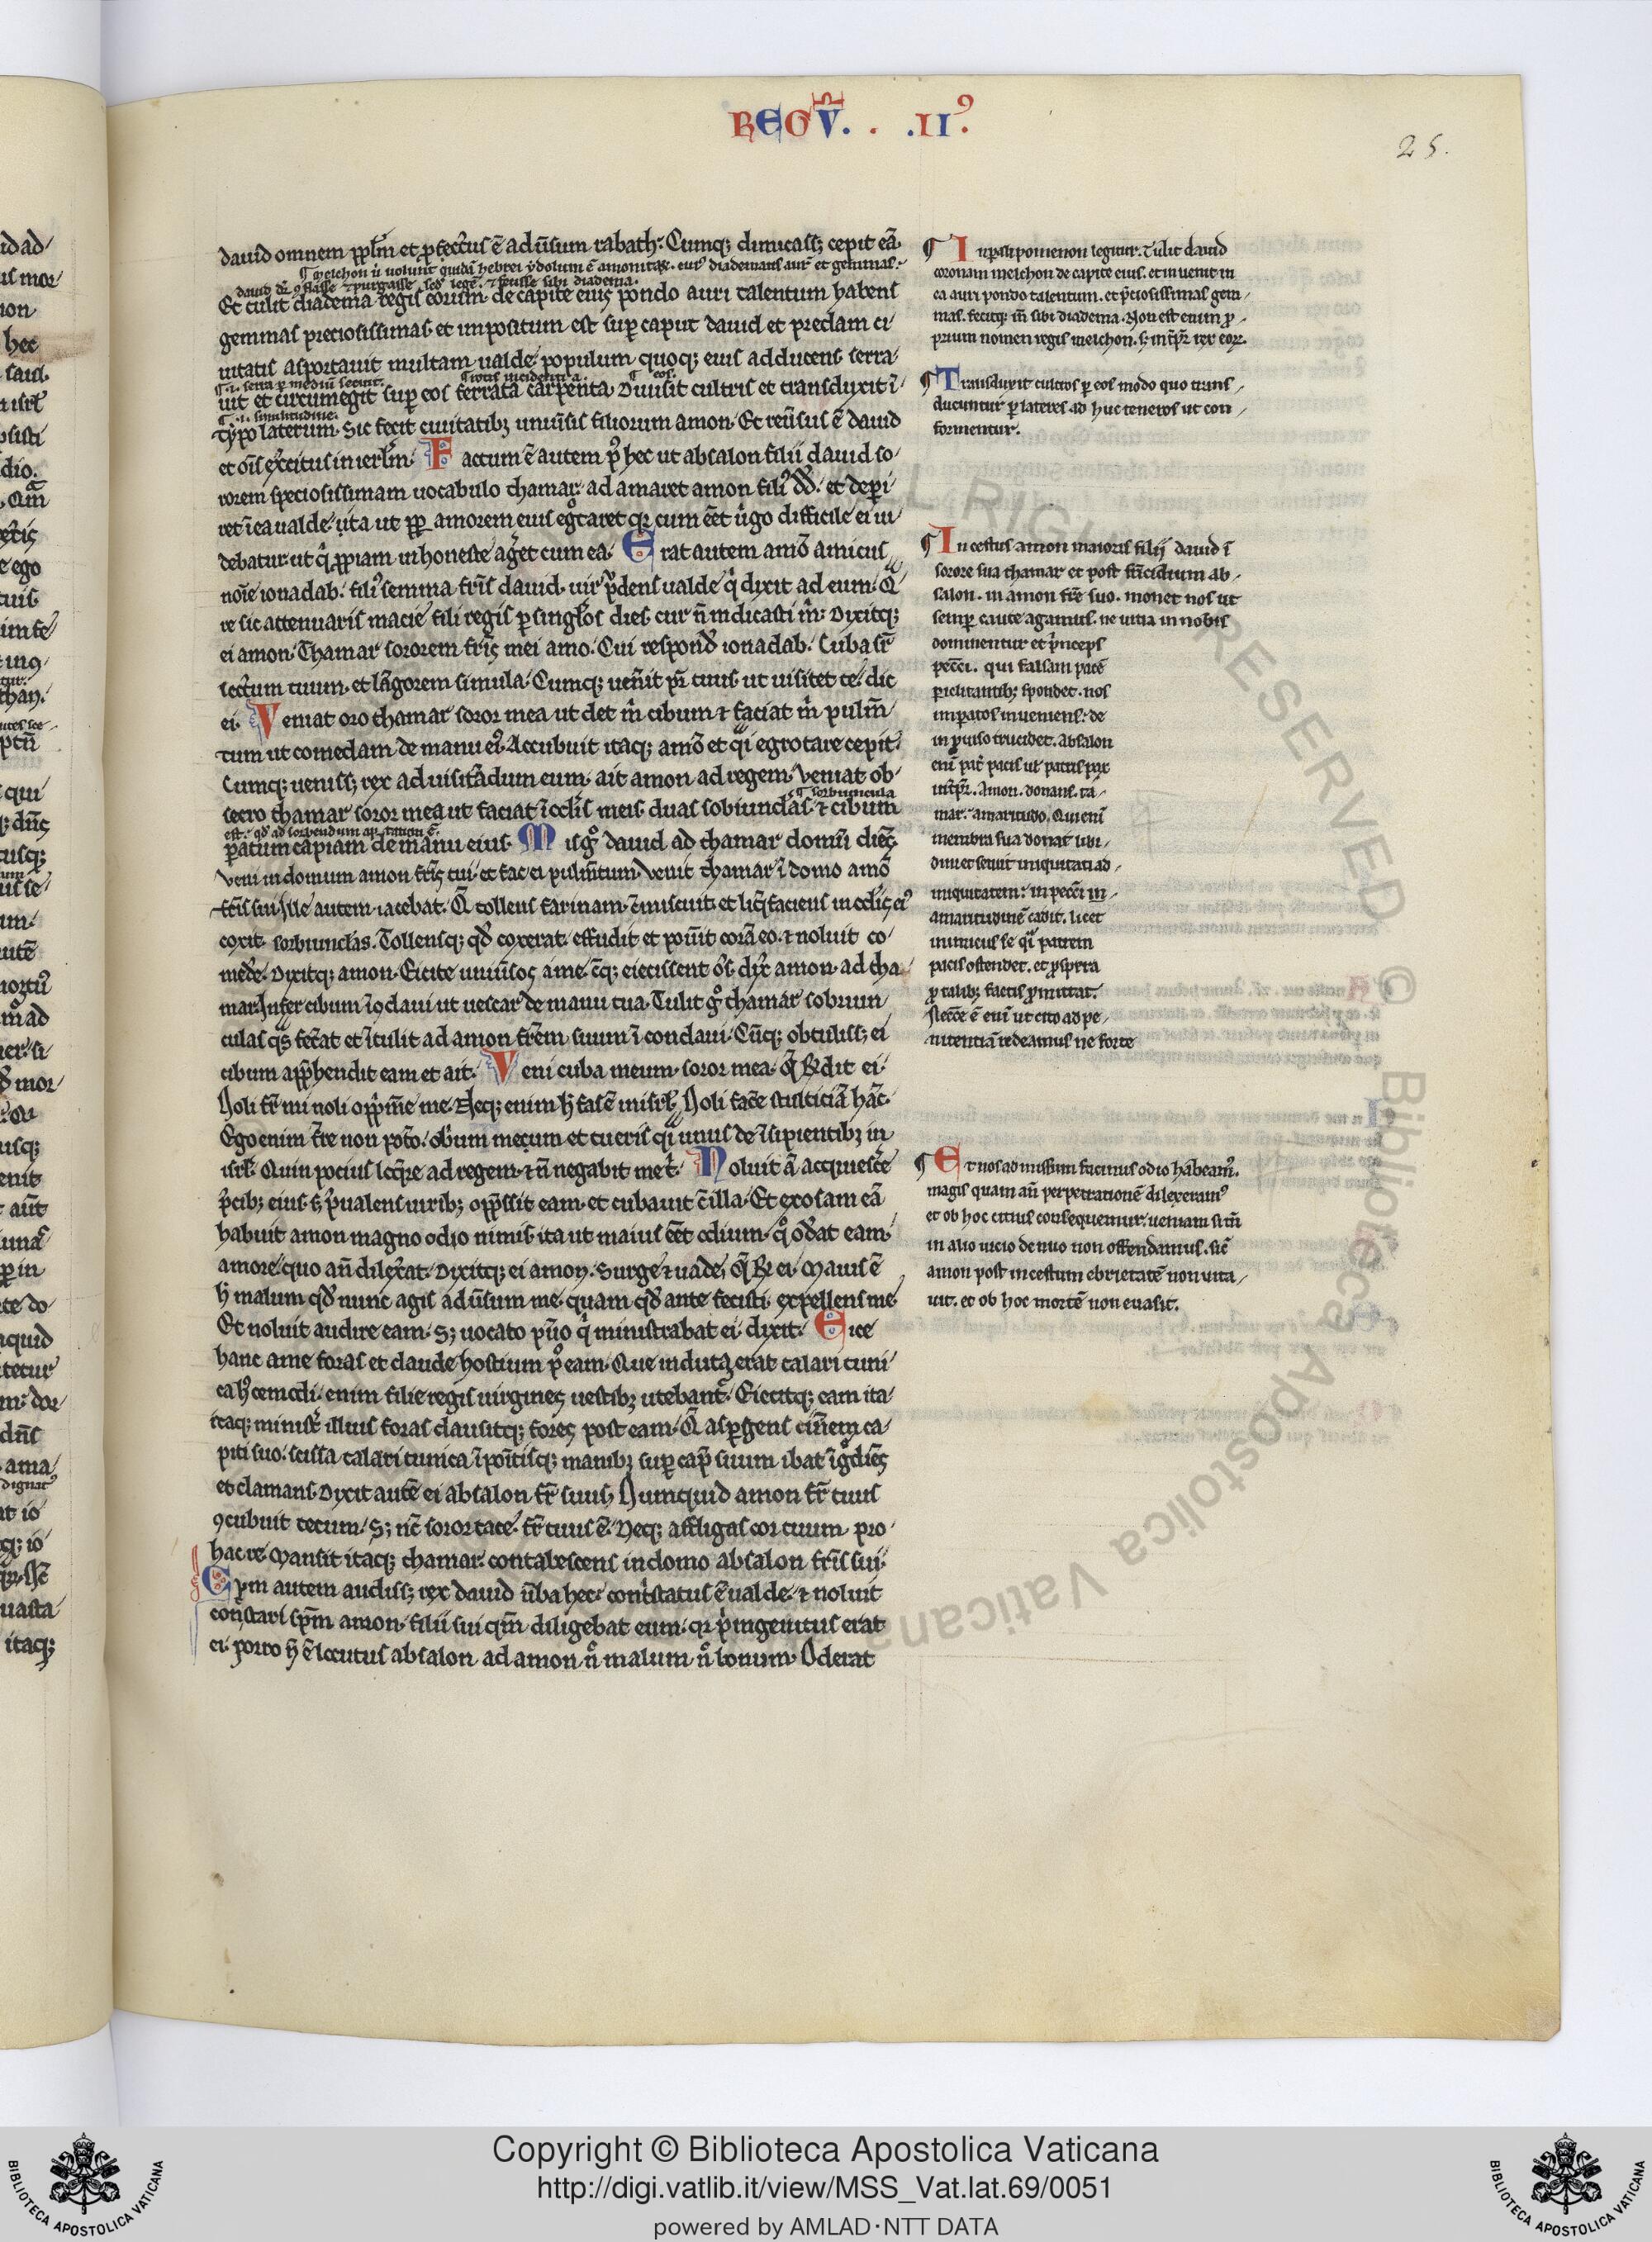 REGV̄. . .II⁹.
25.
dauid omnem ppl̄m et ꝓfectus ē aduersum rabath. Cumq; dimicass; cepit eā.
¶ melchon ū uolunt quidā hebrei ydolum ē amonitaꝝ. eius diademans aur̄ et gemmas.
dauid dr̄ ꝯflasse et purgasse sed̄ legē. et fecisse sibi diadema.
Et tulit diadema regis eorum de capite eius pondo auri talentum habens
gemmas preciosissimas et impositum est suꝑ caput dauid et predam ci
uitatis asportauit multam ualde. populum quoq; eius adducens serra
¶ .i. serra ꝑ mediū secuit. ¶ rotis incidentia. ¶ eos.
uit et circumegit suꝑ eos ferrata carpenta. Diuisit cultris et transduxit ī
¶ .i. similitudine.
typo laterum. Sic fecit ciuitatibꝫ uniūsis filiorum amon. Et reūsus ē dauid
et oīs exercitus in ierl̄m. Factum ē autem ꝑ hec ut absalon filii dauid so
rorem speciosissimam uocabulo thamar. adamaret amon fili⁹ dd̄. et deꝑi
ret ī ea ualde. ita ut ꝓpꝑ amorem eius egrotaret qꝛ cum eēt uirgo difficile ei ui
debatur ut qͥ ꝓpiam inhoneste ageret cum ea. Erat autem amō amicus
noīe ionadab. fili⁹ semma fr̄is dauid. uir prudens ualde qͥ dixit ad eum. Qͣ
re sic attenuaris macie fili regis ꝑ singulos dies. cur n̄ indicasti m̄. Dixitq;
ei amon. Thamar sororem fr̄is mei amo. Cui respond̄ ionadab. Cuba sr̄
lectum tuum. et langorem simula. Cumq; uen̄it pr̄ tuus ut uisitet te. dic
ei. Veniat oro thamar soror mea ut det m̄ cibum et faciat m̄ pulm̄
tum ut comedam de manu ei⁹. Accubuit itaq; amō et qͥ egrotare cepit.
Cumq; ueniss; rex ad uisitādum eum. ait amon ad regem. Veniat ob
¶ sorbiuncula
secro thamar soror mea ut faciat ī oclīs meis duas sobiunclas. et cibum
est. qd̄ ad sorbendum aptatum ē.
ꝑatum capiam de manu eius. Mis gͦ dauid ad thamar domū dicēs
Veni in domum amon fr̄is tui. et fac ei pulm̄tum. Venit thamar ī domō amō
fr̄is sui. Ille autem iacebat. Q̄ tollens farinam. cōmiscuit. et liq̄faciens in oclīs ei⁹
coxit sorbiunclas. Tollensq; qd̄ coxerat. effudit et posuit corā eo. et noluit co
med̄e. Dixitq; amon. Eicite uniūsos a me. Cūq; eiecissent oēs. dix̄ amon ad tha
mar. Infer cibum ī ꝯclaui ut uescar de manu tua. Tulit gͦ thamar sobiun
culas qͣs fec̄at et ītulit ad amon fr̄em suum ī conclaui. Cūq; obtuliss; ei
cibum app̄hendit eam et ait. Veni cuba mecum soror mea. Q̄ Rn̄dit ei.
Noli fr̄ mi noli opp̄im̄e me. Neq; enim h̄ fas ē in isrl̄. Noli fac̄e stulticiā hāc.
Ego enim f̄re non pot̄o. obꝑium mecum et tu eris qͥ unus de īsipientibꝫ in
isrl̄. Quin pocius loq̄re ad regem. et n̄ negabit me t̄. Noluit ā acquiesc̄e
p̄cibꝫ eius. s; p̄ualens uiribꝫ opp̄ssit eam. et cubauit c̄ illa. Et exosam eā
habuit amon magno odio nimis. ita ut maius eēt odium. qͦ od̄at eam.
amore quo an̄ dilex̄at. Dixitq; ei amon. Surge et uade. Q̄ R̄ ei. Maius ē
h̄ malum qd̄ nunc agis adūsum me. quam qd̄ ante fecisti. expellens me.
Et noluit audire eam. S; uocato puo qͥ ministrabat ei. dixit. Eice
hanc a me foras et claude hostium pͦ eam. Que induta erat talari tuni
ca. h⁹cemodi enim filie regis uirgines uestibꝫ utebant̄. Eiecitq; eam ita
itaq; minist̄ illius foras clausitq; fores post eam. Q̄ asꝑgens cin̄em ca
piti suo. scissa talari tunica īpoītisq; manibꝫ suꝑ cap̄ suum ibat īgͦdiēs
et clamans. Dixit autē ei absalon fr̄ suus. Numquid amon fr̄ tuus
ꝯcubuit tecum. S; nc̄ soror tace. fr̄ tuus ē. Neq; affligas cor tuum pro
hac re. Mansit itaq; thamar contabescens in domo absalon fr̄is sui.
Cum autem audiss; rex dauid ūba hec. contͥstatus ē ualde. et noluit
constari sp̄m amon filii sui qm̄ diligebat eum. qꝛ pͥmogenitus erat
ei. Porro n̄ ē locutus absalon ad amon nͦ malum nͦ bonum. Oderat
¶ In ꝑalipomenon legitur. Tulit dauid
coronam melchon de capite eius. et inuenit in
ea auri pondo talentum. et p̄ciosissimas gem
mas. fecitq; in̄ sibi diadema. Non est enim ꝓ
prium nomen regis melchon. s; intp̄r̄ rex eoꝝ.
¶ Transduxit cultros ꝑ eos modo quo trans
ducuntur ꝑ lateres adhuc teneros ut con
formentur.
¶ Incestus amon maioris filii dauid ī
sorore sua thamar et post fr̄icidium ab
salon. in amon fr̄e suo. monet nos ut
semꝑ caute agamus. ne uitia in nobis
dominentur et p̄nceps
pecc̄i. qui falsam pacē
ꝑiclitantibꝫ spondet. nos
imparatos inueniens. de
inprouiso trucidet. Absalon
eni pat̄ pacis ul̄ patris pax
intp̄r̄. Amon. donans. ta
mar. amaritudo. Qui eni
membra sua donat libi
dini et seruit iniquitati ad
iniquitatem. in pecc̄i in
amaritudinē cadit. licet
inimicus se qͥ patrem
pacis ostendet. et ꝓspera
ꝓ talibꝫ factis ꝓmittat.
Necc̄e ē eni ut cito ad pe
nitentiā redeamus ne forte
¶ Et nos admissum facinus odio hab̄eam⁹.
magis quam an̄ perpetrationē dilexeram⁹
et ob hoc citius consequemur ueniam si tn̄
in alio uicio denuo non offendamus. sic̄
amon post incestum ebrietatē non uita
uit. et ob hoc mortē non euasit.
Copyright © Biblioteca Apostolica Vaticana
http://digi.vatlib.it/view/MSS_Vat.lat.69/0051
powered by AMLAD·NTT DATA
BIBLIOTECA APOSTOLICA VATICANA
BIBLIOTECA APOSTOLICA VATICANA